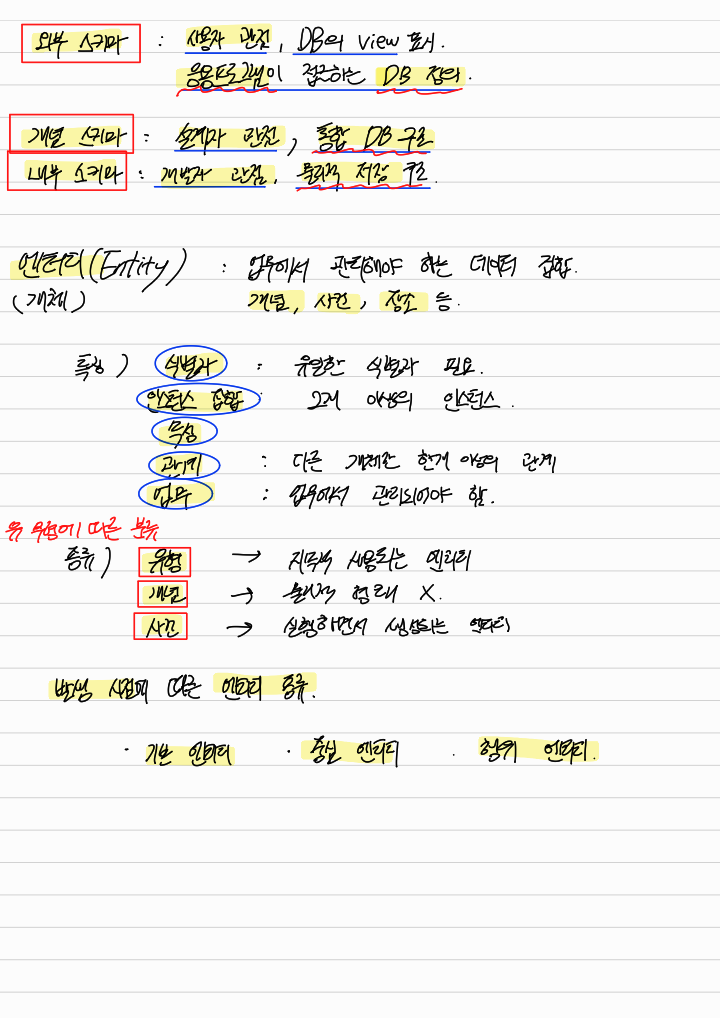 외부 스키마 : 사용자 관점, DB의 view 표시.
응용프로그램이 접근하는 DB 정의.
개념 스키마 : 설계자 관점, 통합 DB 구조
내부 스키마 : 개발자 관점, 물리적 저장 구조.
엔터티(Entity) : 업무에서 관리해야 하는 데이터 집합.
(개체) 개념, 사건, 장소 등.
특징) 식별자 : 유일한 식별자 필요.
인스턴스 집합 : 2개 이상의 인스턴스.
속성
관계 : 다른 개체와 한개 이상의 관계
업무 : 업무에서 관리되어야 함.
유무형에 따른 분류
종류) 유형 → 지속적 사용되는 엔터티
개념 → 물리적 형태 X.
사건 → 실행하면서 생성되는 엔터티
발생 시점에 따른 엔터티 종류.
· 기본 엔터티 · 중심 엔터티 · 행위 엔터티.